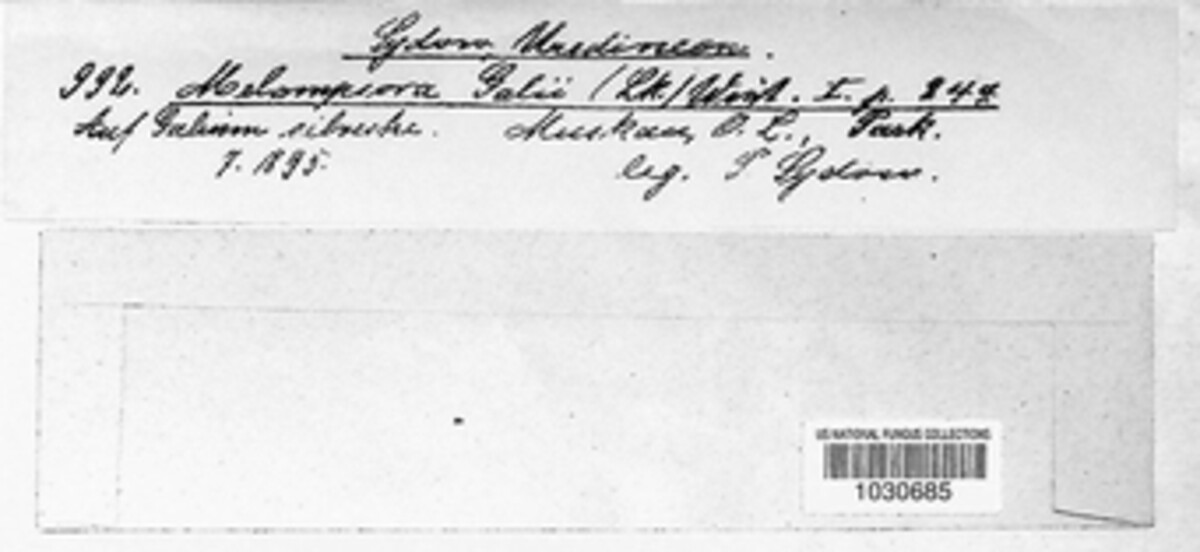 Sydow, Uredineen.
992. Melampsora Galii (Lk.) Wint. I. p. 244
Auf Galium silvestre. Muskau, O. L., Park.
7. 1895. leg. P. Sydow.
US NATIONAL FUNGUS COLLECTIONS
1030685